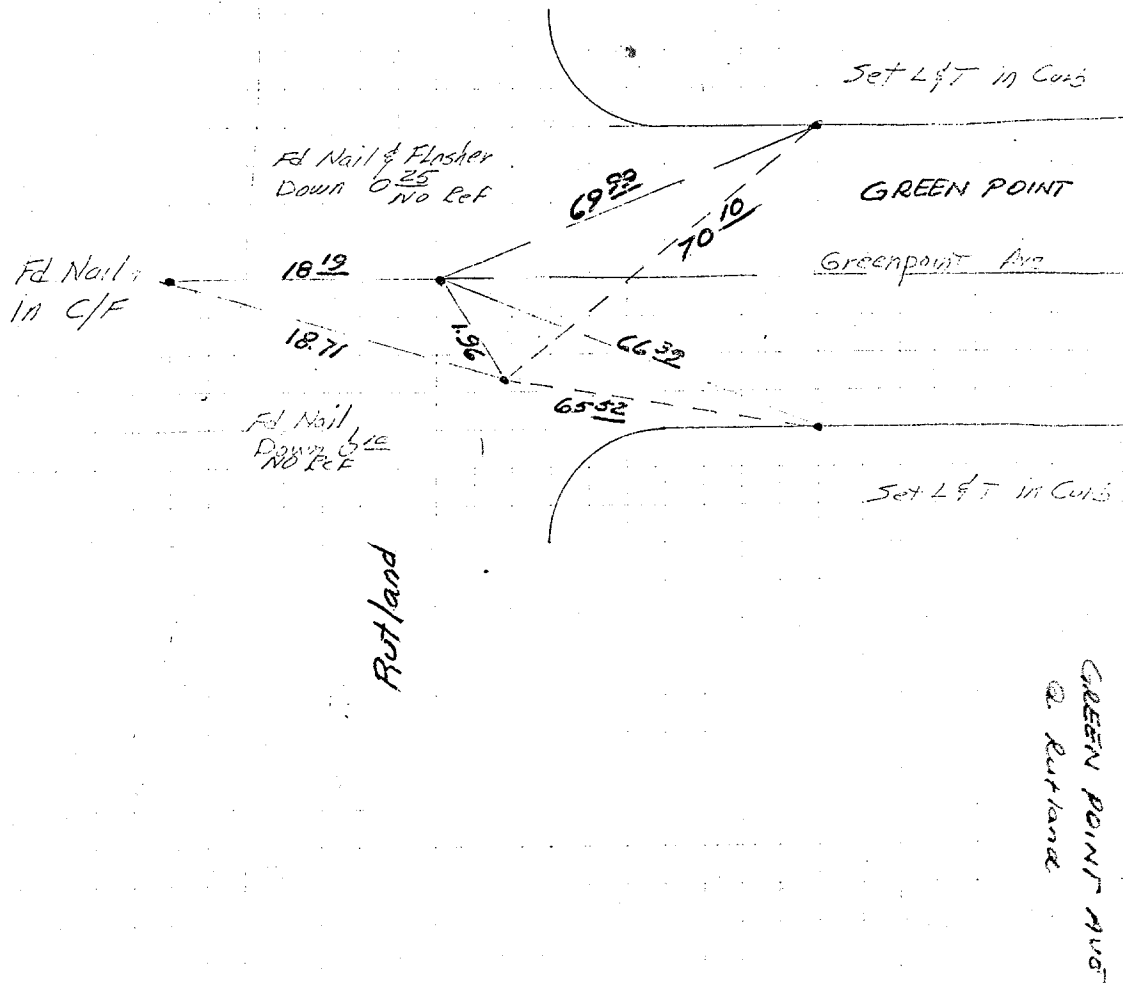 Set L&T in Curb
Fd Nail & Flasher
Down 0 25
No Ref
69 99
70 10
GREEN POINT
Fd Nail
in C/F
18 19
Greenpoint Ave
18.71
1.96
66 39
65 52
Fd Nail
Down 0 10
No Ref
Set L&T in Curb
Rutland
GREEN POINT AVE
@ Rutland